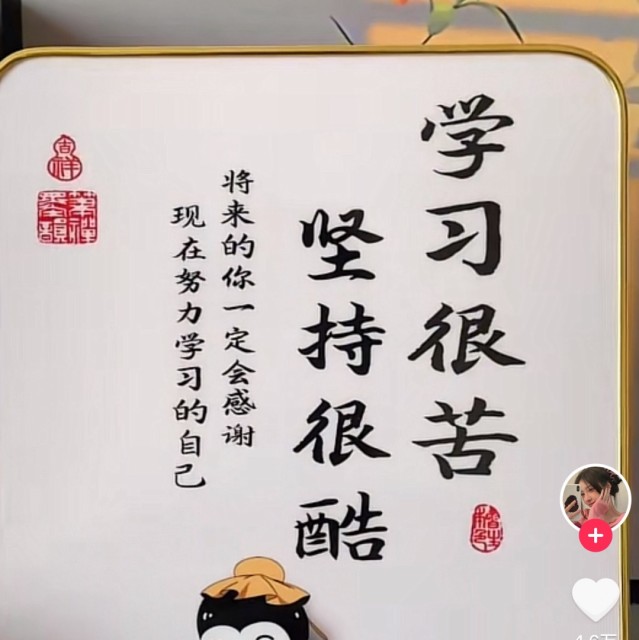 学习很苦
坚持很酷
将来的你一定会感谢
现在努力学习的自己
吉祥